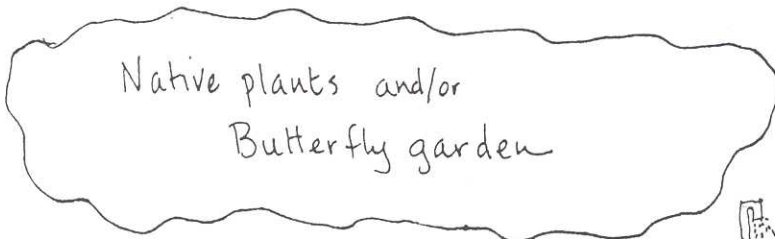 Native plants and/or
Butterfly garden